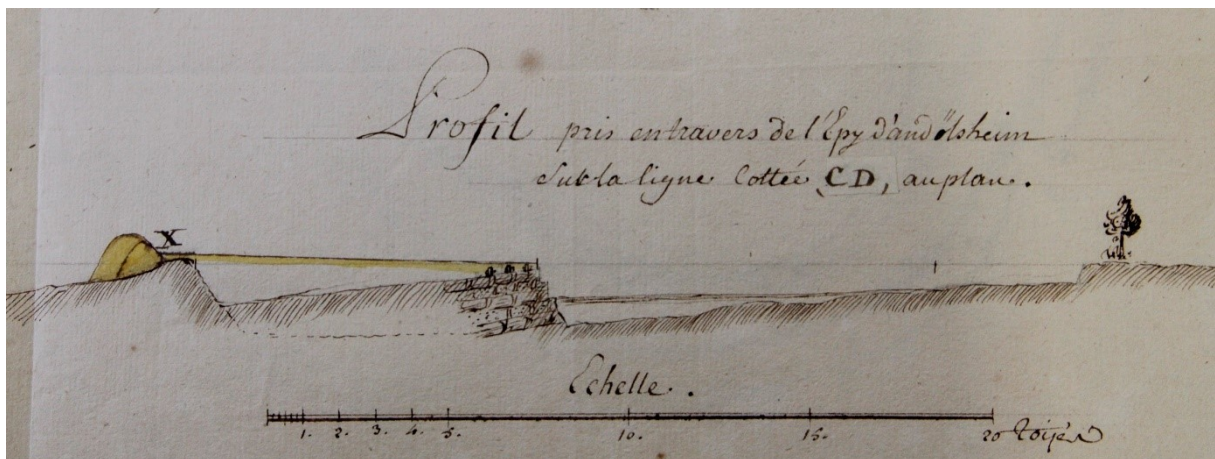 Profil pris entravers de l'Epy d'andolsheim
Sur la ligne Cottée CD, au plan.
X
Echelle.
1. 2. 3. 4. 5. 10. 15. 20 toises